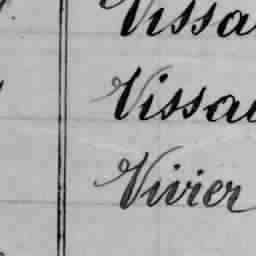 Vissa
Vissau
Vivier